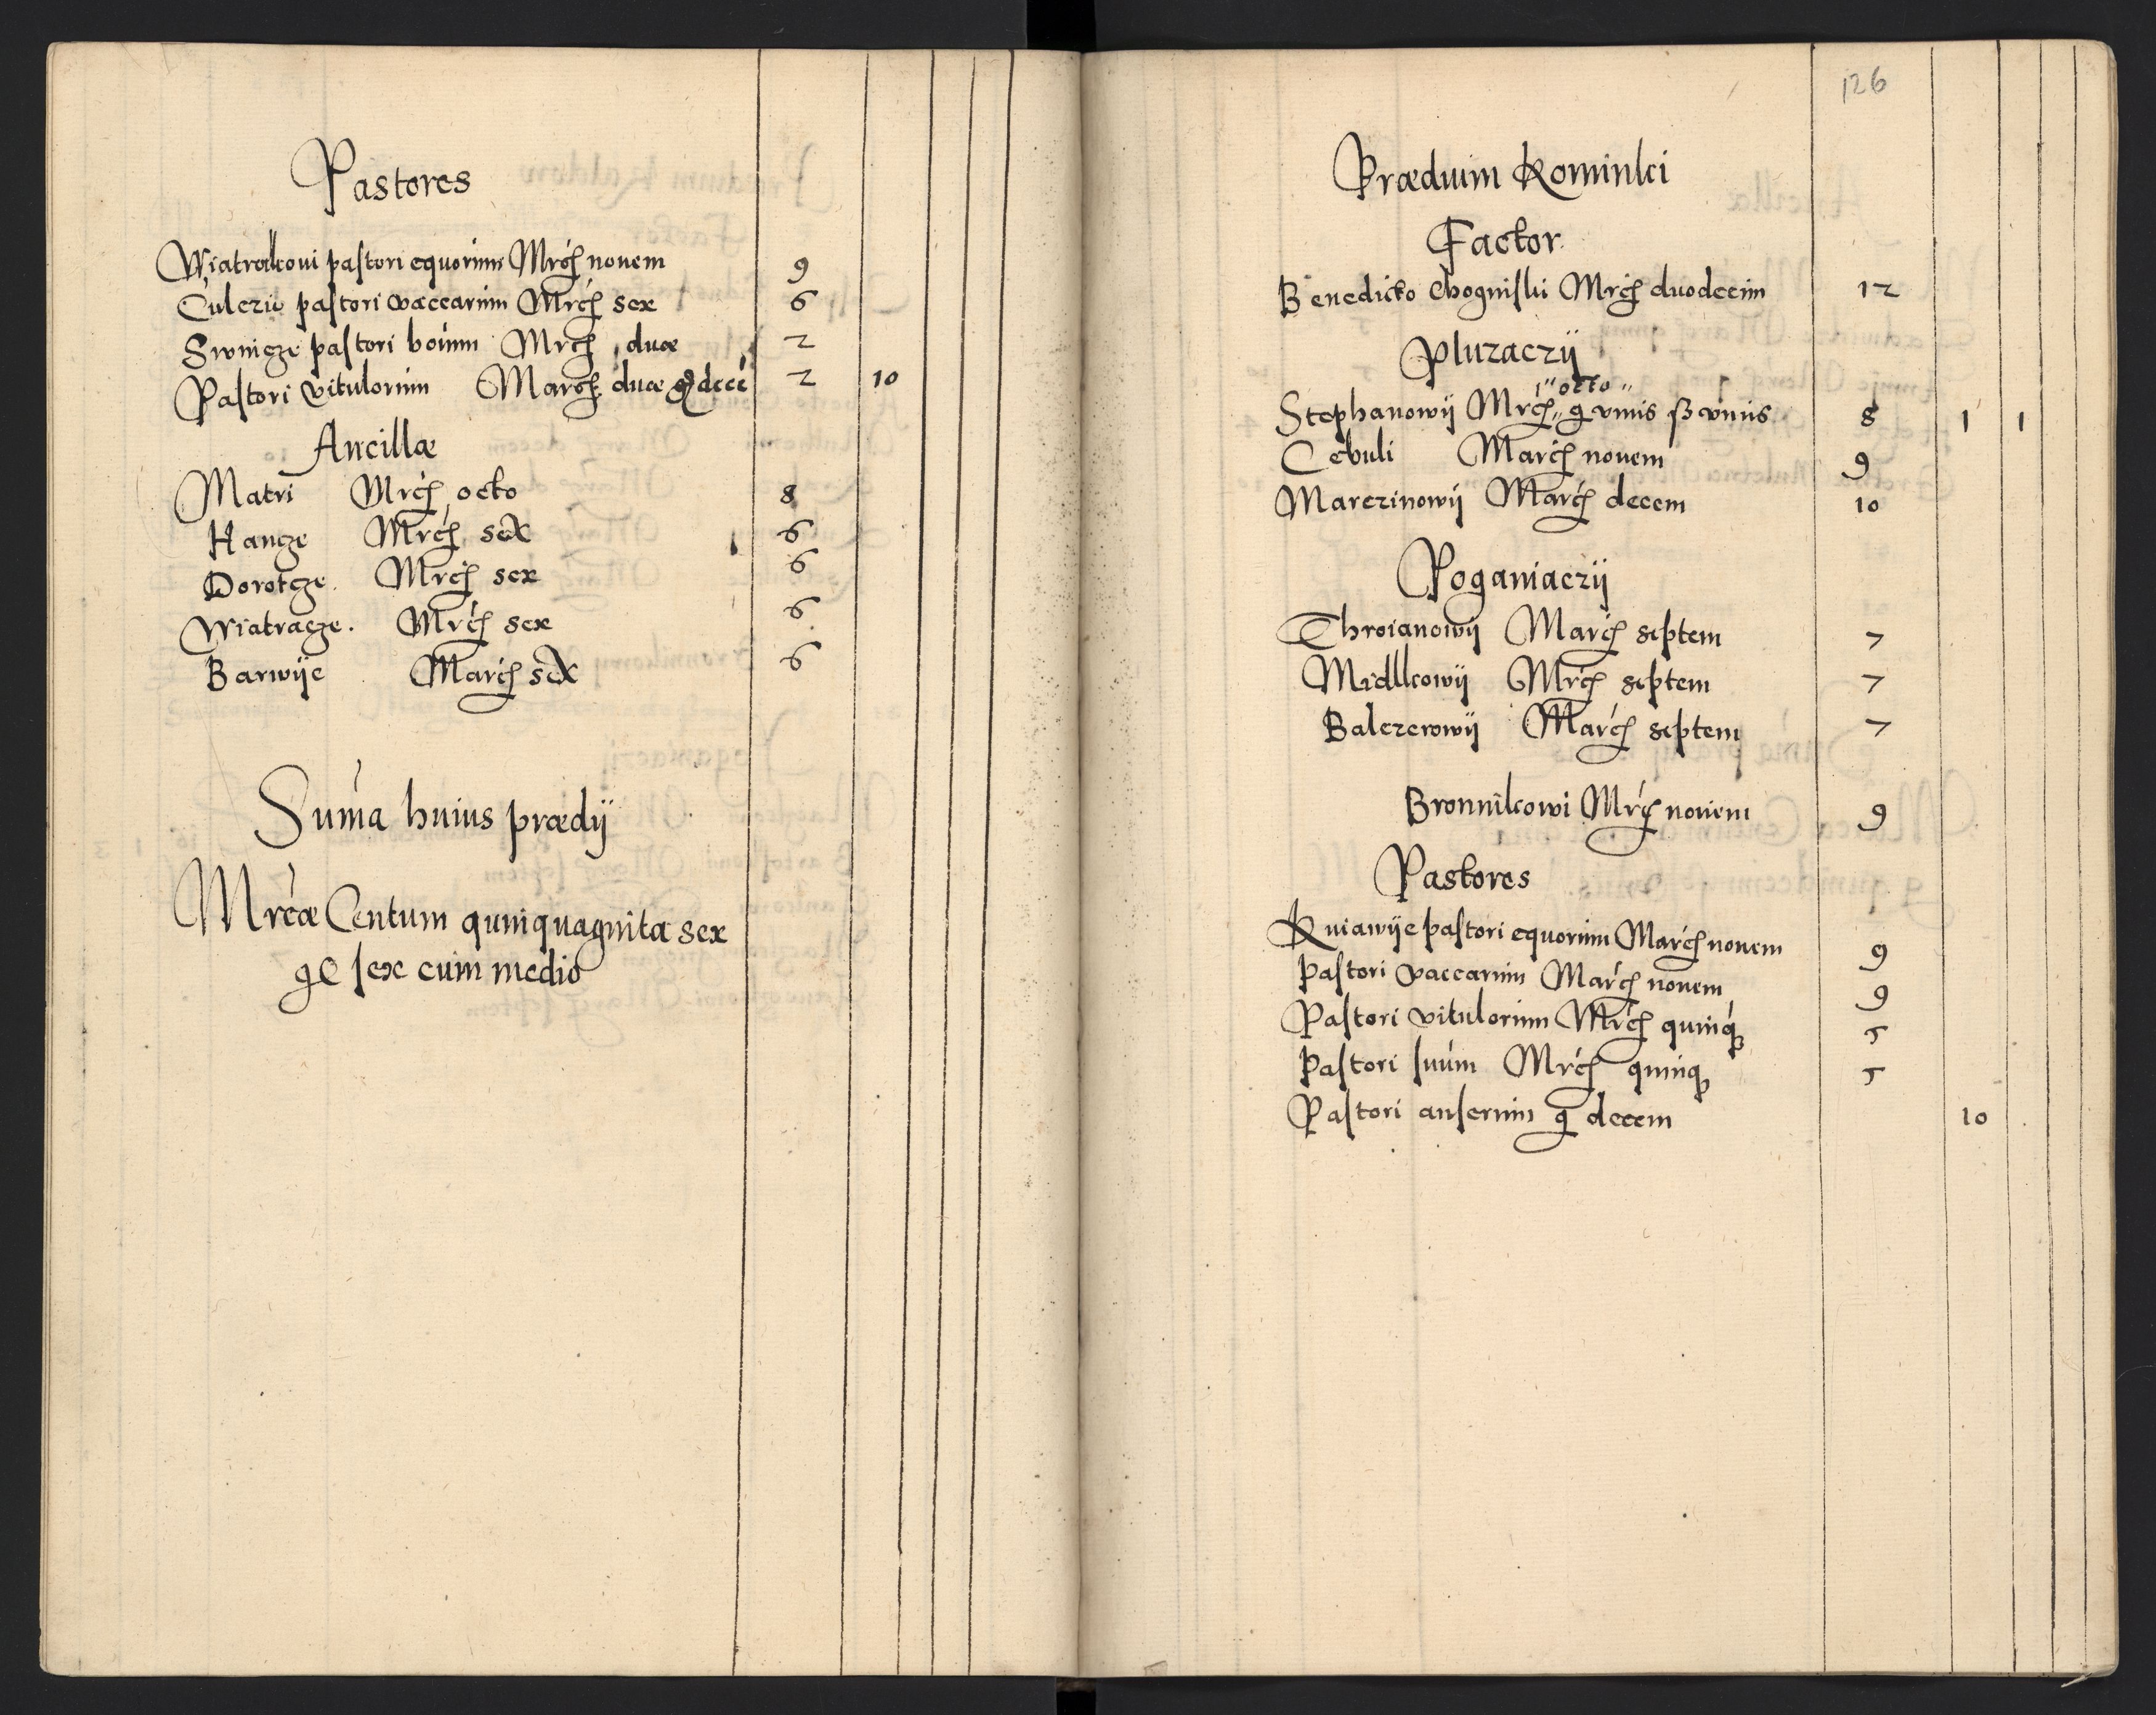 Pastores
Wiatrakoui pastori equorum Mrcȩ nouem 9
Culeziu pastori vaccarum Mrcȩ sex 6
Swnicze pastori boúum Mrcȩ duæ 2
Pastori vitulorum Marcȩ duæ g decē 2 10
Ancillæ
Matri Mrcȩ octo 8
Hancze Mrcȩ sex 6
Dorotcze Mrcȩ sex 6
Wiatracze. Mrcȩ sex 6
Barwÿe Marcȩ sex 6
Suma huius prædÿ
Mrcæ Centum quinquaginta sex
g sex cum medio
126
Prædium Kominki
Factor
Benedicto Chogniski Mrcȩ duodecim 12
Pluzaczÿ
Stephanowÿ Mrcȩ "octo" g vnus ß vnus 8 1 1
Cebuli Marcȩ nouem 9
Marczinowÿ Marcȩ decem 10
Poganiaczÿ
Throianowÿ Marcȩ septem 7
Midlkowÿ Mrcȩ septem 7
Balczerowÿ Marcȩ septem 7
Bronnikowi Mrcȩ nouem 9
Pastores
Kuiawÿe pastori equorum Marcȩ nouem 9
Pastori vaccarum Marcȩ nouem 9
Pastori vitulorum Mrcȩ quinq 5
Pastori suúm Mrcȩ quinq 5
Pastori anserum g decem 10